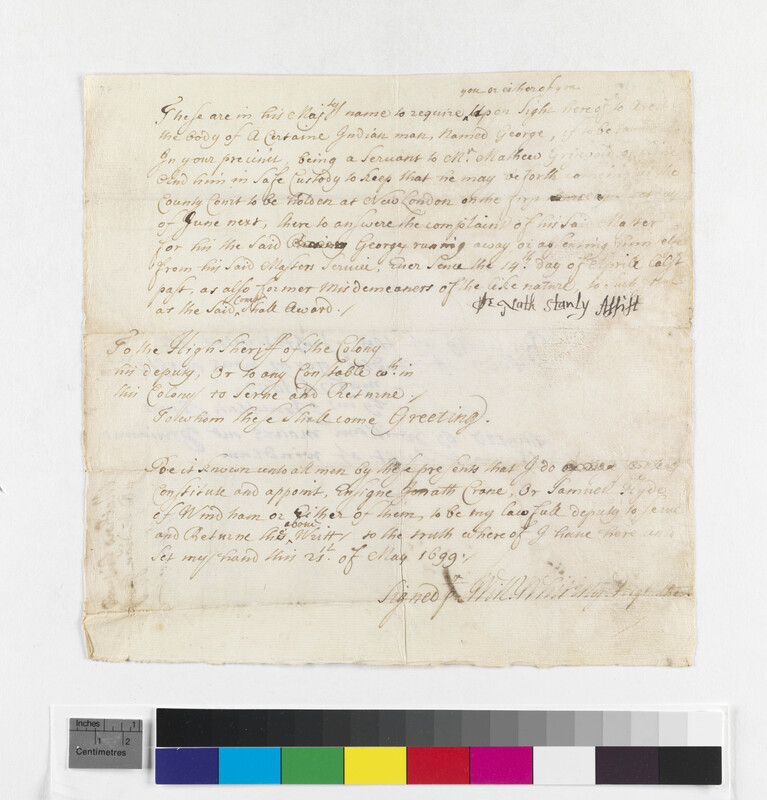 you or either of you
These are in his Maj^tys name to require, Upon Sight hereof to
the body of A Certaine Indian man, Named George, if to be
In your precinct, being a Servant to M^r Mathew
And him in Safe Custody to keep that he may be forth coming
County Court to be holden at New London on the first
of June next, there to answere the complaint of his Said Master
for his the Said George runing away or absenting himselfe
from his Said Masters Service, Ever Since the 14^th day of Aprile last
past, as also former misdemeaners of the like nature, to
as the Said Court Shall Award /
Nath Stanly Assist
To the High Sheriff of the Colony
his deputy, Or to any Constable w^th in
this Colony to Serve and Returne /
To whom these Shall come Greeting.
Be it known unto all men by these presents that I do
Constitute and appoint, Ensigne Jonath Crane, Or Samuell Hyde
of Windham or Either of them, to be my lawfull deputy to Serve
and Returne this above Writt / to the truth whereof I have here unto
Set my hand this 21^st. of May 1699 /
Signed p^r
Inches 1
1 2
Centimetres